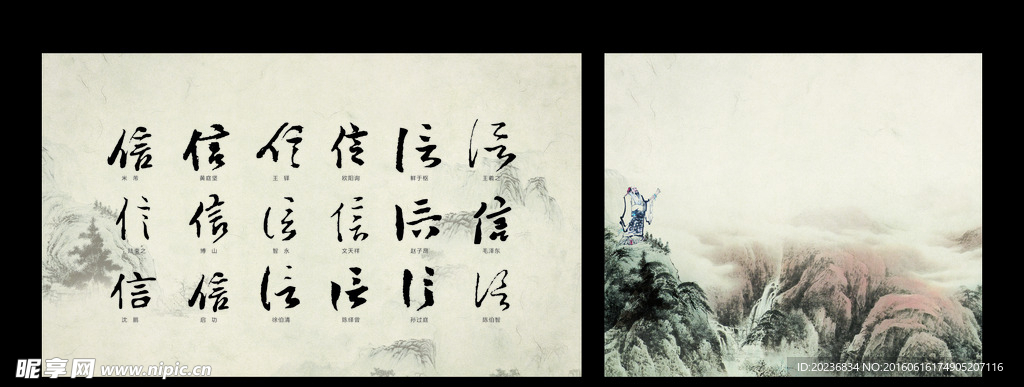 信 信 信 信 信 信
米芾 黄庭坚 王铎 欧阳询 鲜于枢 王羲之
信 信 信 信 信 信
陆柬之 傅山 智永 文天祥 赵子昂 毛泽东
信 信 信 信 信 信
沈鹏 启功 徐伯清 陈绎曾 孙过庭 陈伯智
昵享网 www.nipic.cn
ID:20236834 NO:20160616174905207116